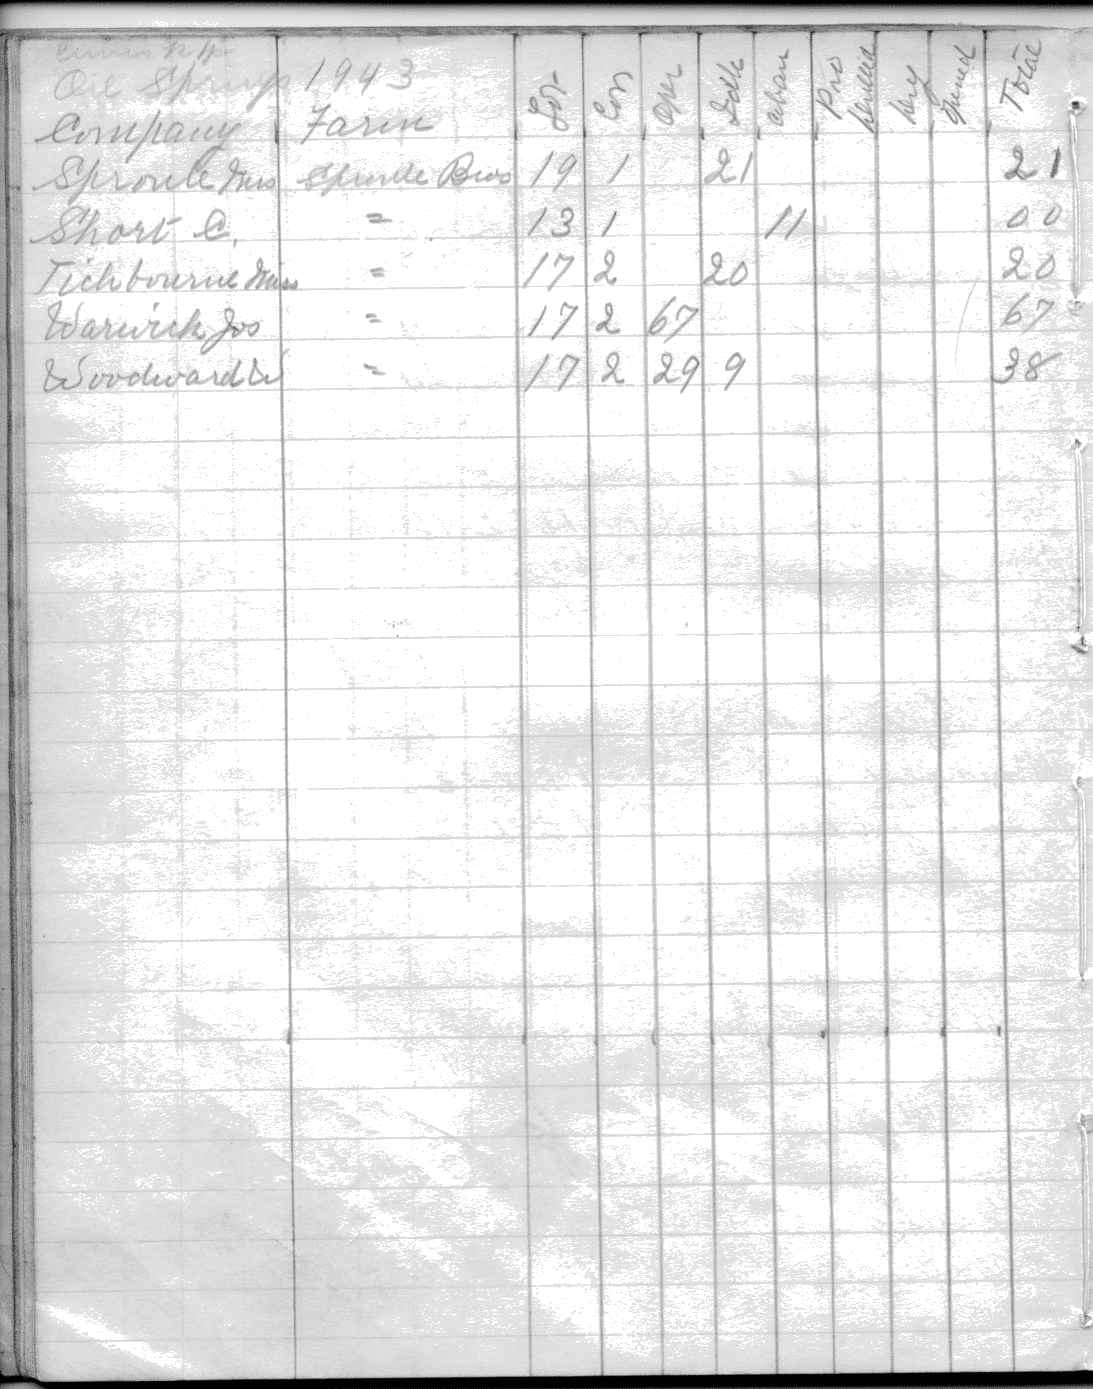 Oil Springs 1943
Company Farm Lot Con Opr Idle aban Pro Total
Sproule Mrs Sproule Bros 19 1 21 21
Short C. " 13 1 11 00
Tichbourne Miss " 17 2 20 20
Warwick Jos " 17 2 67 67
Woodward W " 17 2 29 9 38